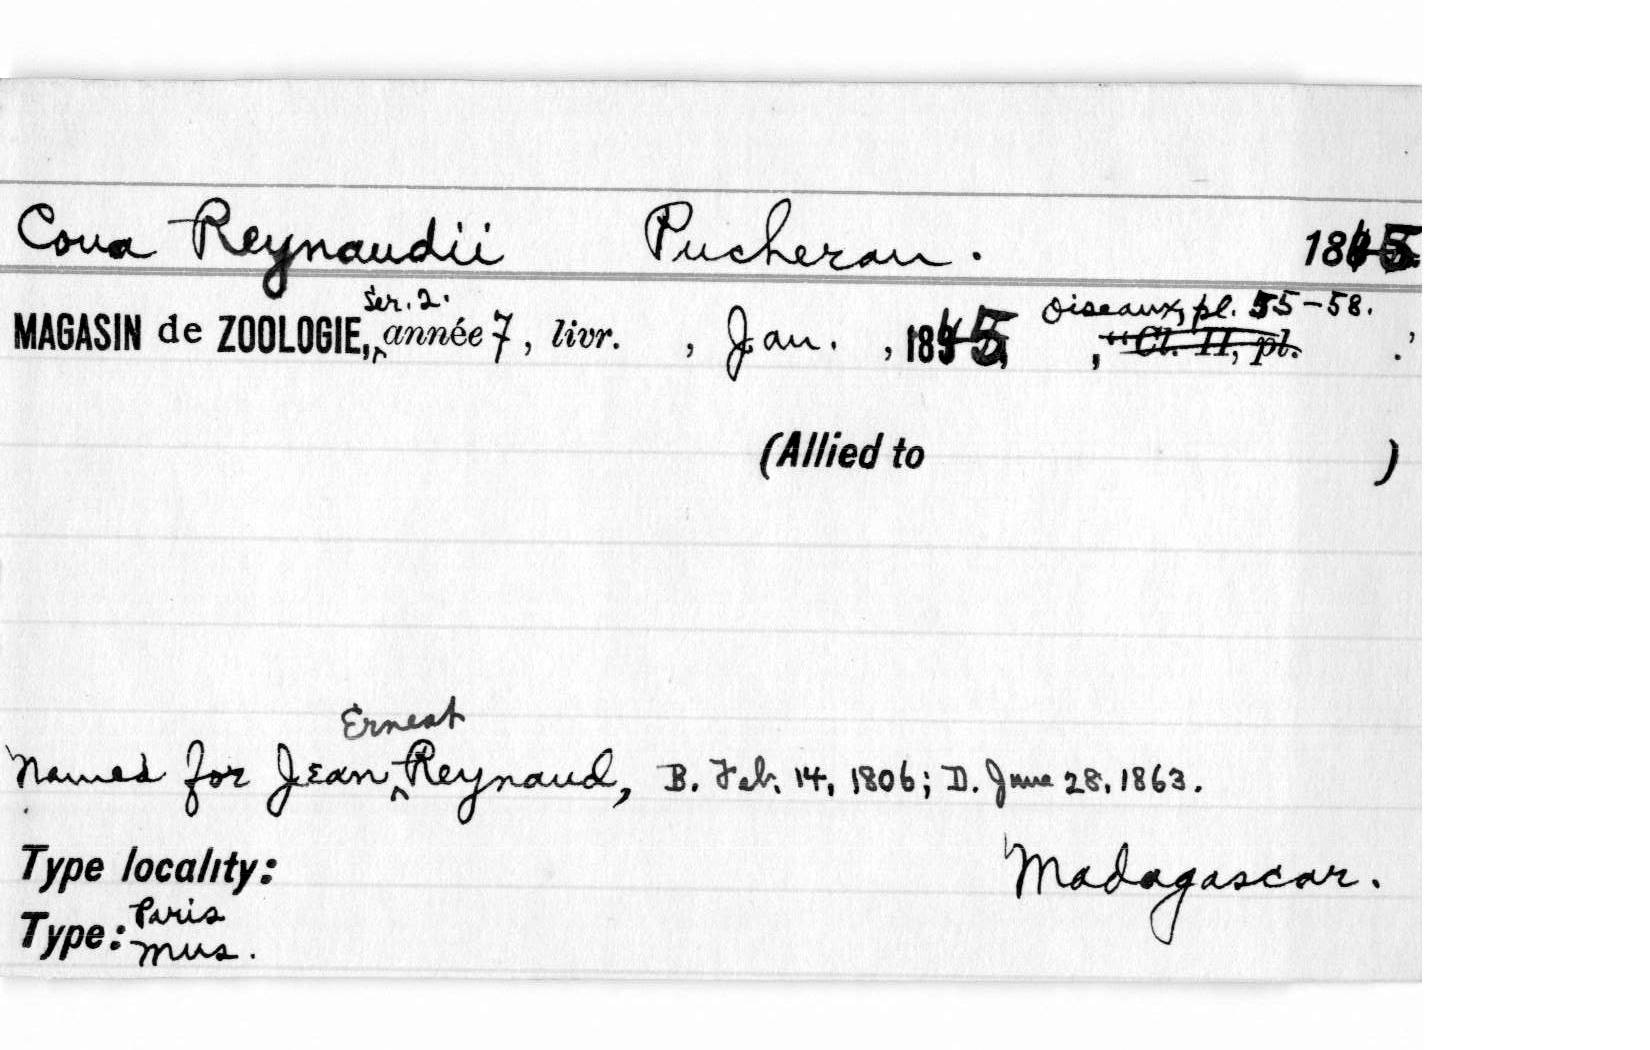 Coua Reynaudii Pucheran. 1845.
Ser. 2. Oiseaux, pl. 55-58.
MAGASIN de ZOOLOGIE, année 7, livr. , Jan. , 1845, , "Cl. II, pl. .'
(Allied to )
Ernest
Named for Jean Reynaud, B. Feb. 14, 1806; D. June 28, 1863.
Type locality: Madagascar.
Type: Paris
Mus.